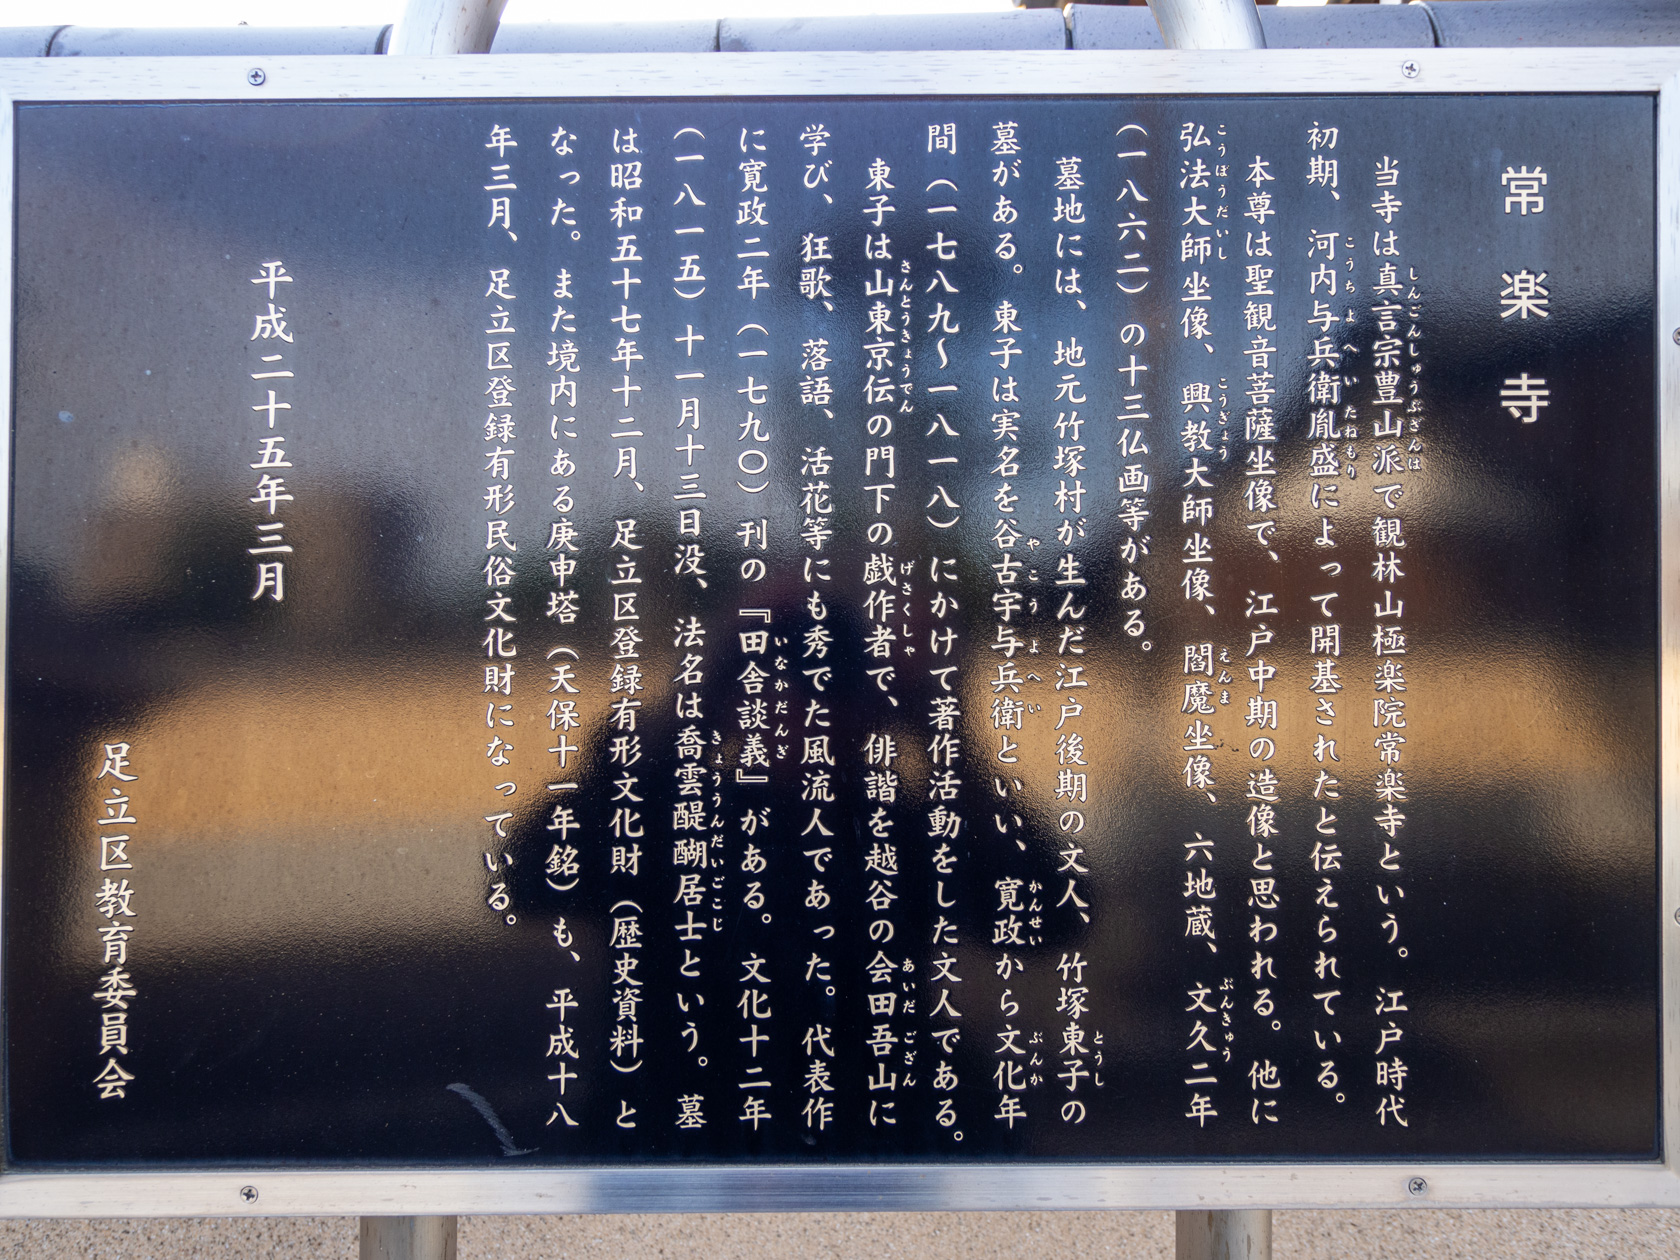 常楽寺
当寺は真言宗豊山派で観林山極楽院常楽寺という。江戸時代
初期、河内与兵衛胤盛によって開基されたと伝えられている。
本尊は聖観音菩薩坐像で、江戸中期の造像と思われる。他に
弘法大師坐像、興教大師坐像、閻魔坐像、六地蔵、文久二年
（一八六二）の十三仏画等がある。
墓地には、地元竹塚村が生んだ江戸後期の文人、竹塚東子の
墓がある。東子は実名を谷古宇与兵衛といい、寛政から文化年
間（一七八九～一八一八）にかけて著作活動をした文人である。
東子は山東京伝の門下の戯作者で、俳諧を越谷の会田吾山に
学び、狂歌、落語、活花等にも秀でた風流人であった。代表作
に寛政二年（一七九〇）刊の『田舎談義』がある。文化十二年
（一八一五）十一月十三日没、法名は喬雲醍醐居士という。墓
は昭和五十七年十二月、足立区登録有形文化財（歴史資料）と
なった。また境内にある庚申塔（天保十一年銘）も、平成十八
年三月、足立区登録有形民俗文化財になっている。
平成二十五年三月
足立区教育委員会
しんごんしゅうぶざんは
こうちよへいたねもり
こうぼうだいし
こうぎょう
えんま
ぶんきゅう
とうし
やこうよへい
かんせい
ぶんか
さんとうきょうでん
げさくしゃ
あいだござん
いなかだんぎ
きょううんだいごこじ